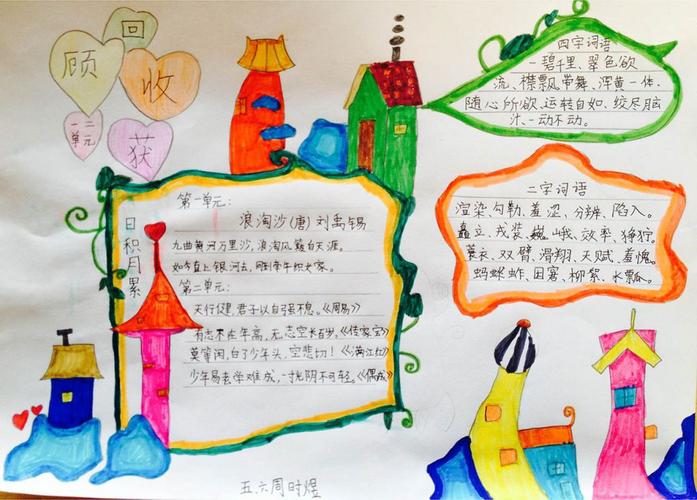 回
顾
收
获
一二
单元
日积月累
第一单元:
浪淘沙(唐)刘禹锡
九曲黄河万里沙,浪淘风簸自天涯。
如今直上银河去,同到牵牛织女家。
第二单元:
天行健,君子以自强不息。《周易》
有志不在年高,无志空长百岁。《传家宝》
莫等闲,白了少年头,空悲切!《满江红》
少年易老学难成,一寸光阴不可轻。《偶成》
四字词语
一碧千里、翠色欲
流、襟飘带舞、浑黄一体、
随心所欲、运转自如、绞尽脑
汁、一动不动。
二字词语
渲染、勾勒、羞涩、分辨、陷入。
矗立、戎装、巍峨、效率、狰狞。
蓑衣、双臂、滑翔、天赋、羞愧。
蚂蚱、困窘、柳絮、水瓢。
五六周时煜